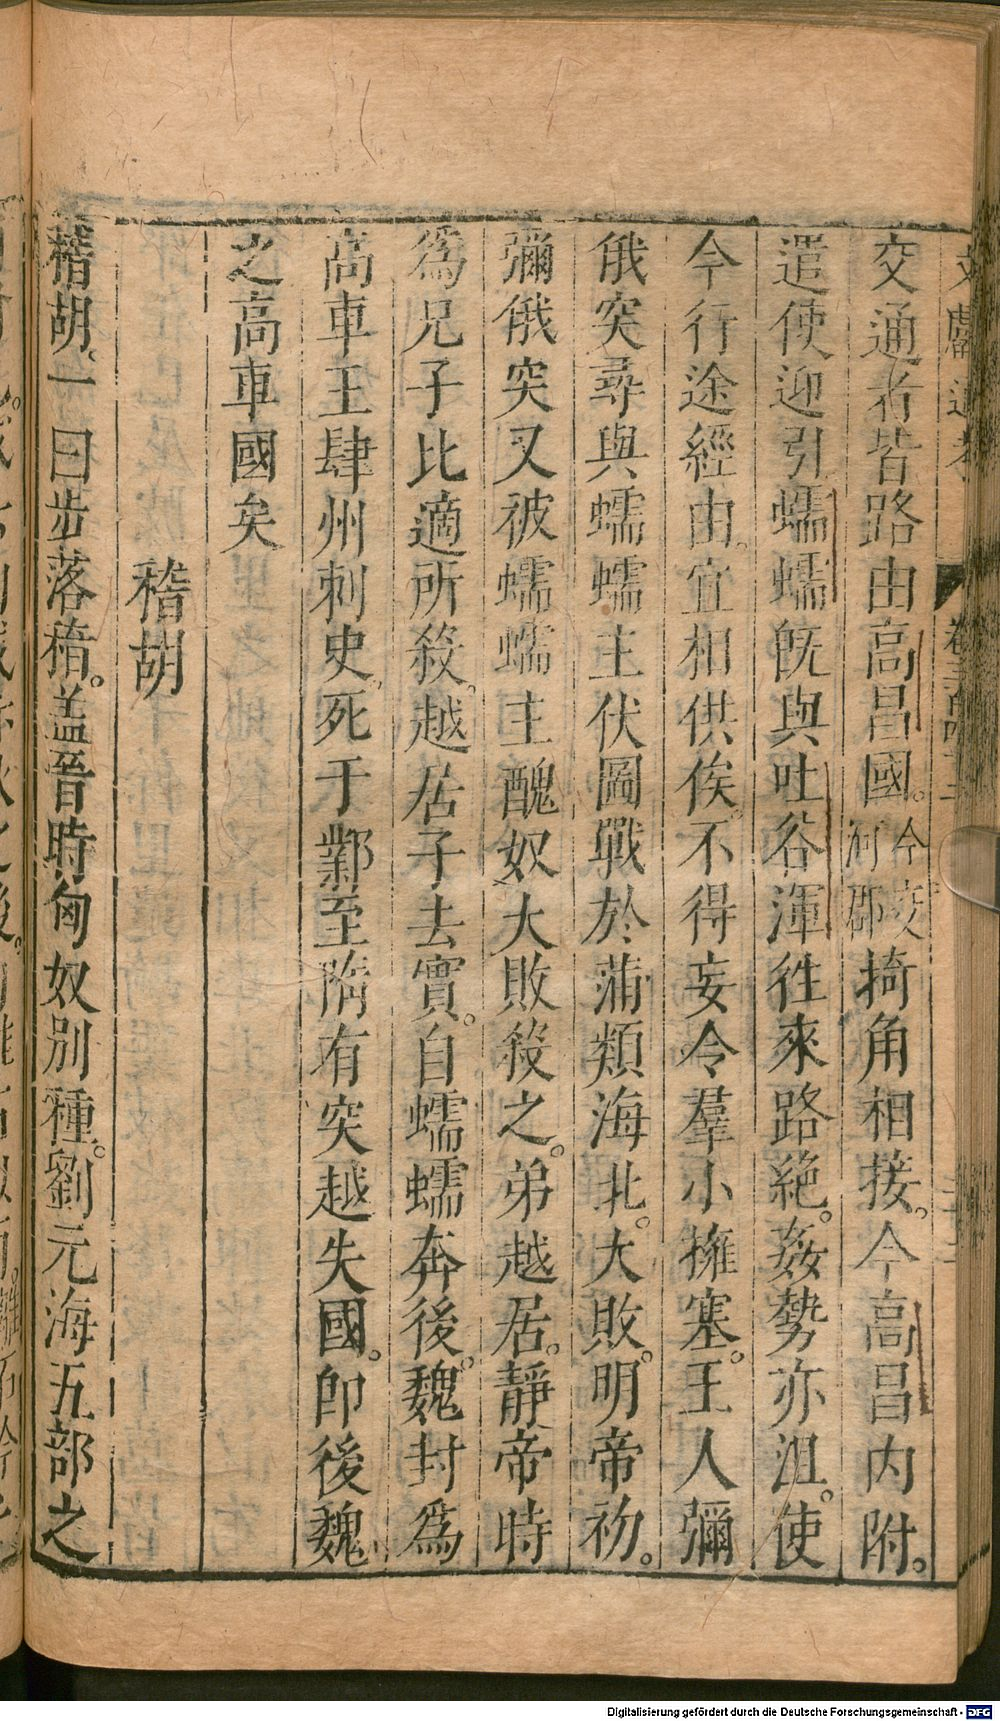 文獻通考 卷三百四十二
交通者皆路由高昌國。今交河郡掎角相接。今高昌内附。
遣使迎引蠕蠕旣與吐谷渾徃來路絶。姦勢亦沮。使
今行途經由。宜相供俟。不得妄令羣小擁塞。王人彌
俄突尋與蠕蠕主伏圖戰於蒲類海北。大敗。明帝初。
彌俄突又被蠕蠕主醜奴大敗殺之。弟越居。靜帝時
爲兄子比適所殺。越居子去實。自蠕蠕奔後。魏封爲
高車王肆州刺史。死于鄴至隋有突越失國。卽後魏
之高車國矣
稽胡
稽胡。一曰步落稽。盖晉時匈奴别種。劉元海五部之
Digitalisierung gefördert durch die Deutsche Forschungsgemeinschaft - DFG